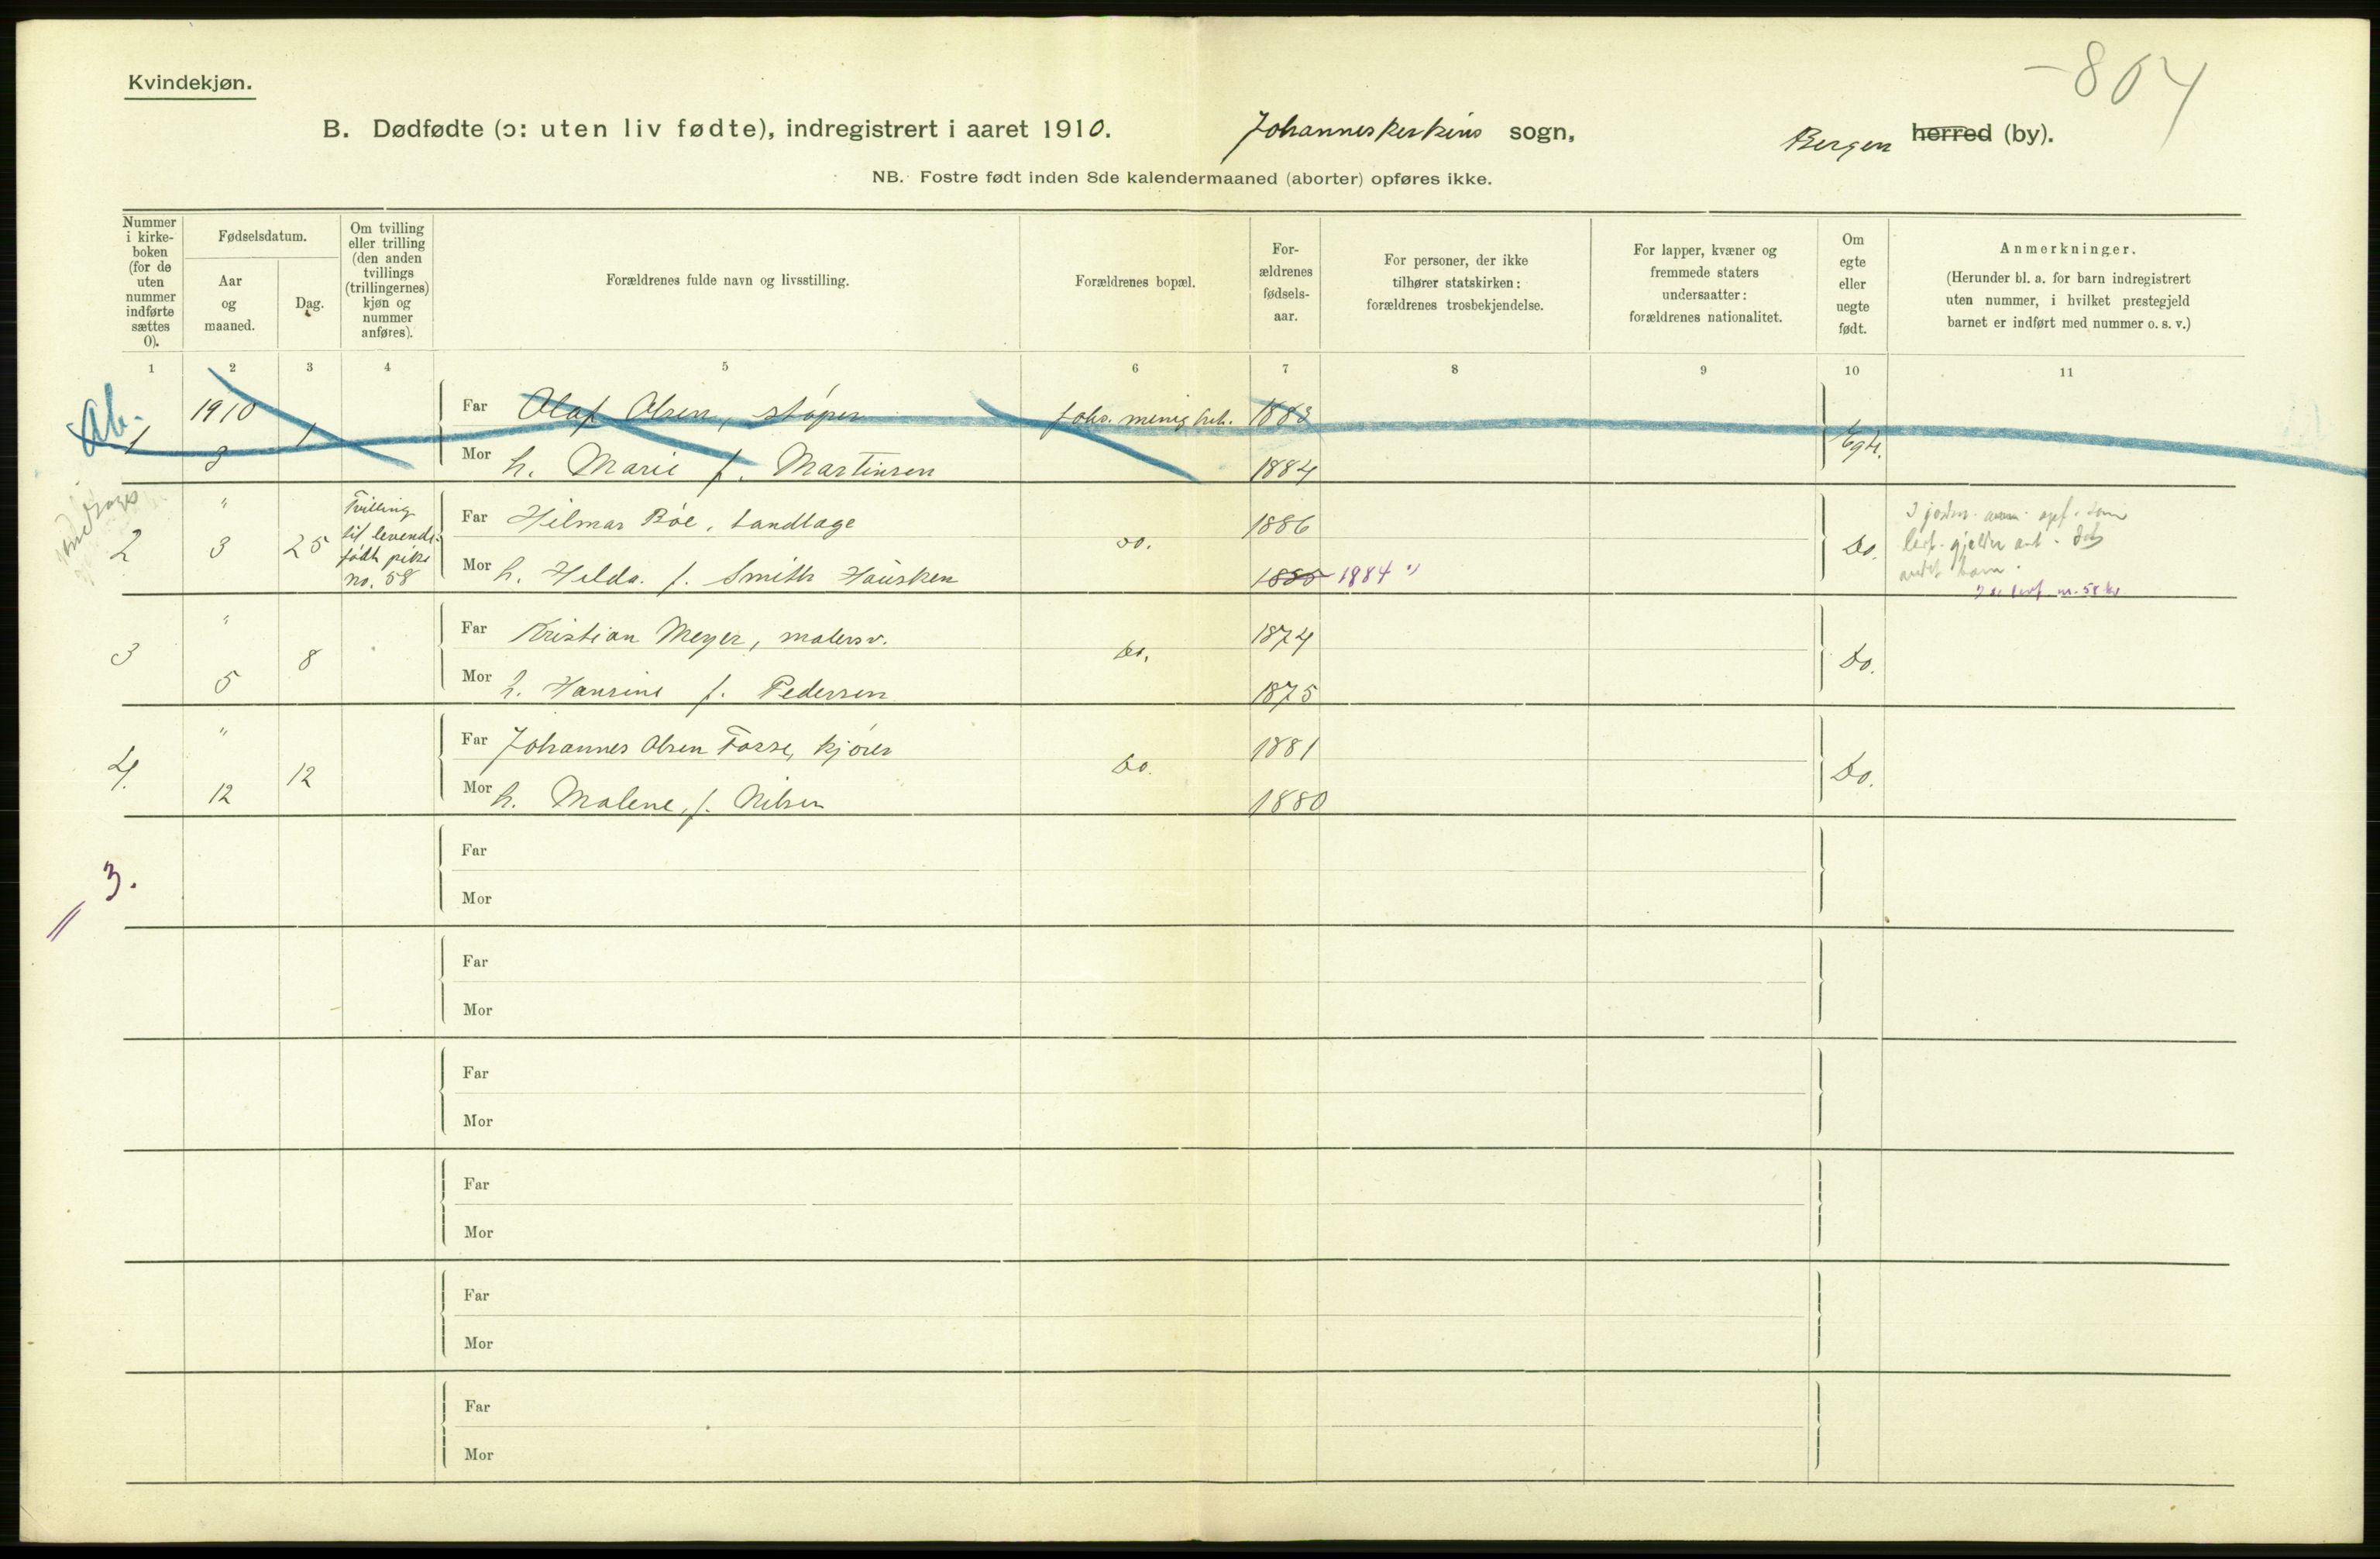 Kvindekjøn.
-804
B. Dødfødte (ɔ: uten liv fødte), indregistrert i aaret 1910. Johanneskirkens sogn, Bergen herred (by).
NB. Fostre født inden 8de kalendermaaned (aborter) opføres ikke.
Nummer i kirke- boken (for de uten nummer indførte sættes 0).
Fødselsdatum.
Aar og maaned.
Dag.
Om tvilling eller trilling (den anden tvillings (trillingernes) kjøn og nummer anføres).
Forældrenes fulde navn og livsstilling.
Forældrenes bopæl.
For- ældrenes fødsels- aar.
For personer, der ikke tilhører statskirken: forældrenes trosbekjendelse.
For lapper, kvæner og fremmede staters undersaatter: forældrenes nationalitet.
Om egte eller uegte født.
Anmerkninger.
(Herunder bl. a. for barn indregistrert uten nummer, i hvilket prestegjeld barnet er indført med nummer o. s. v.)
1 2 3 4 5 6 7 8 9 10 11
Ab.
1 1910 3 1 Far Olaf Olsen, støper Johs. menighet. 1883 Egte.
Mor h. Marie f. Martinsen 1884
2 " 3 25 Tvilling til levende født pike no. 58 Far Hilmar Bøe, Landtage do. 1886 Do.
Mor h. Helda. f. Smith Hausken 1885 1884 1)
andet barn.
3 " 5 8 Far Kristian Meyer, malersv. Do. 1874 Do.
Mor h. Hansine f. Pedersen 1875
4. " 12 12 Far Johannes Olsen Fosse, kjører Do. 1881 Do.
Mor h. Malene, f. Nilsen 1880
Far
3.
Mor
Far
Mor
Far
Mor
Far
Mor
Far
Mor
Far
Mor